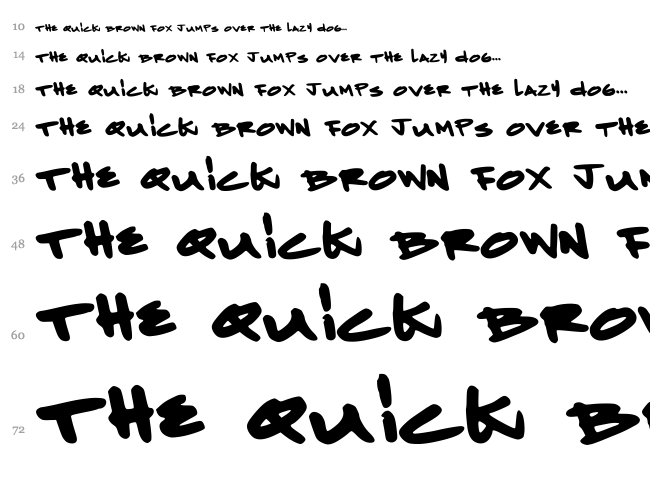 10 THE QUiCK BROWN FOX JUMPS OVER THE LAZY dOG...
14 THE QUiCK BROWN FOX JUMPS OVER THE LAZY dOG...
18 THE QUiCK BROWN FOX JUMPS OVER THE LAZY dOG...
24 THE QUiCK BROWN FOX JUMPS OVER THE
36 THE QUiCK BROWN FOX JUM
48 THE QUiCK BROWN F
60 THE QUiCK BROW
72 THE QUiCK B